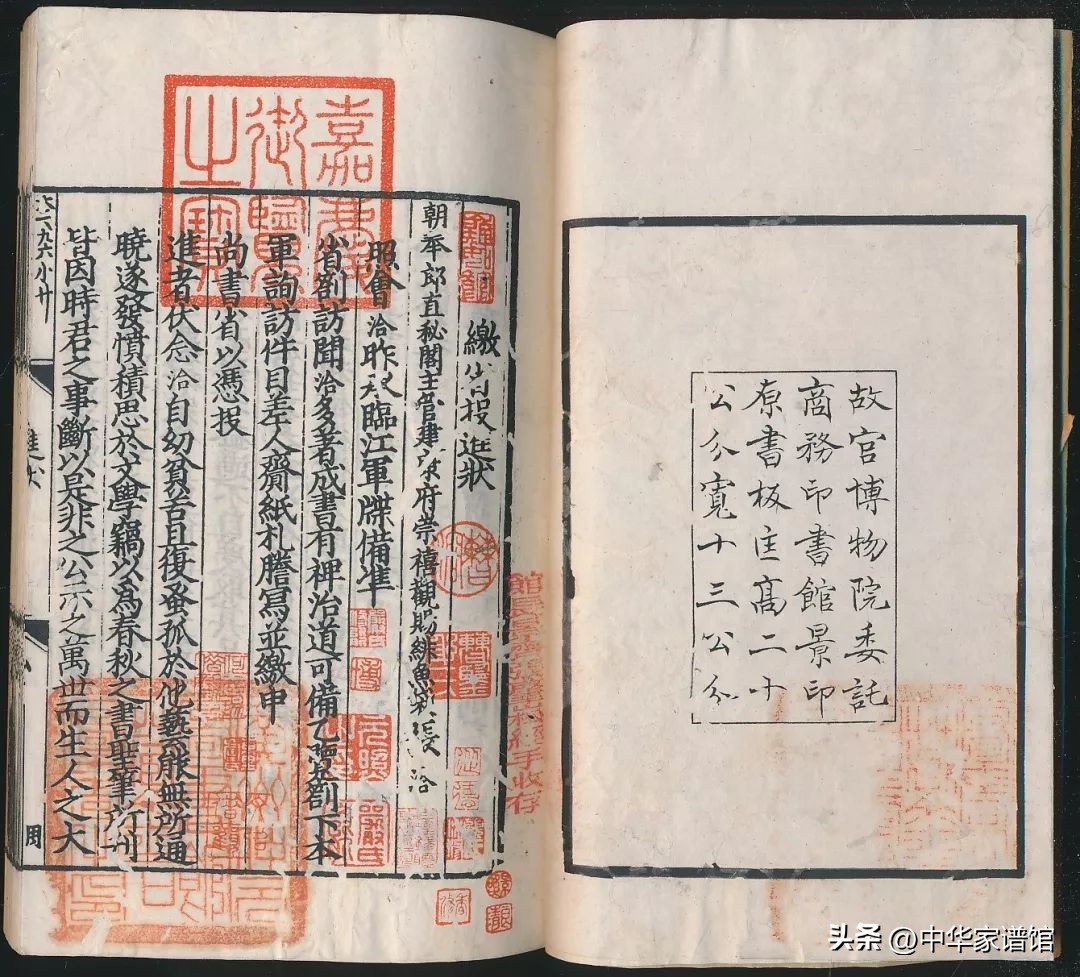 故宮博物院委託
商務印書館景印
原書板匡高二十
公分寬十三公分
嘉慶
御覽
之寶
繳省投進狀
朝奉郎直秘閣主管建康府崇禧觀賜緋魚袋張洽
照會洽昨承臨江軍牒備準
省劄訪聞洽多著成書有裨治道可備乙覽劄下本
軍詢訪件目差人齎紙札謄寫並繳申
尚書省以憑投
進者伏念洽自幼貧苦且復蚤孤於他藝能無所通
曉遂發憤積思於文學竊以為春秋之書聖筆所刊
皆因時君之事斷以是非之公示之萬世而生人之大
周
元照
嚴氏
經手收存
头条 @中华家谱馆